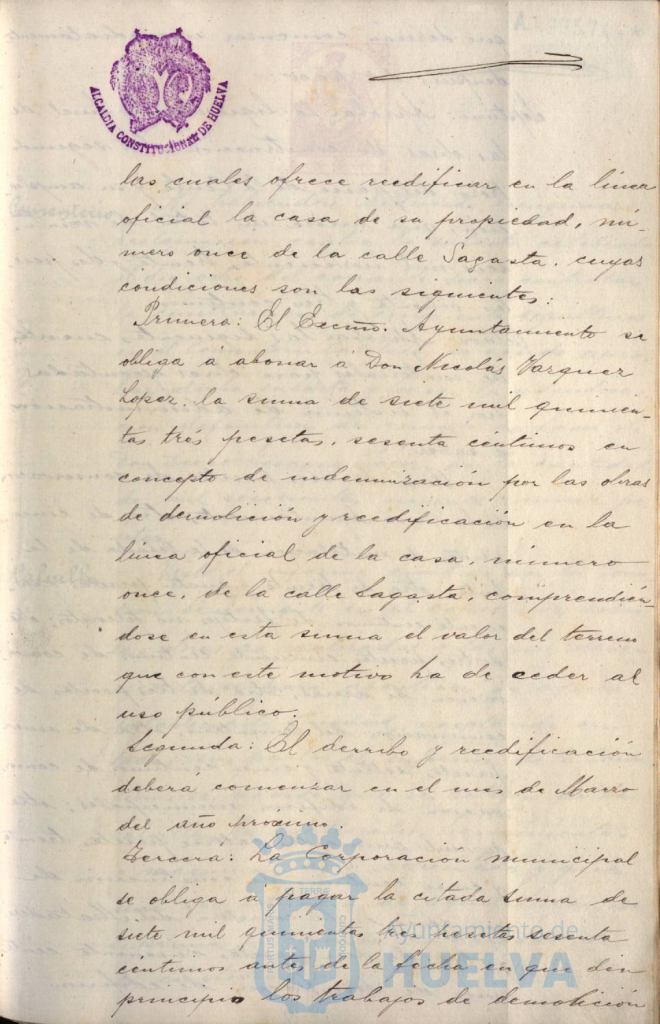 ALCALDIA CONSTITUCIONAL DE HUELVA
las cuales ofrece reedificar en la línea
oficial la casa de su propiedad, nú-
mero once de la calle Sagasta, cuyas
condiciones son las siguientes:
Primera: El Excmo. Ayuntamiento se
obliga á abonar á Don Nicolás Vazquez
Lopez, la suma de siete mil quinien-
tas trés pesetas, sesenta céntimos en
concepto de indemnización por las obras
de demolición y reedificación en la
línea oficial de la casa, número
once, de la calle Sagasta, comprendién-
dose en esta suma el valor del terreno
que con este motivo ha de ceder al
uso público.
Segunda: El derribo y reedificación
deberá comenzar en el mes de Marzo
del año próximo.
Tercera: La Corporación municipal
se obliga a pagar la citada suma de
siete mil quinientas tres pesetas sesenta
céntimos antes de la fecha en que den
principio los trabajos de demolición
Ayuntamiento de
HUELVA